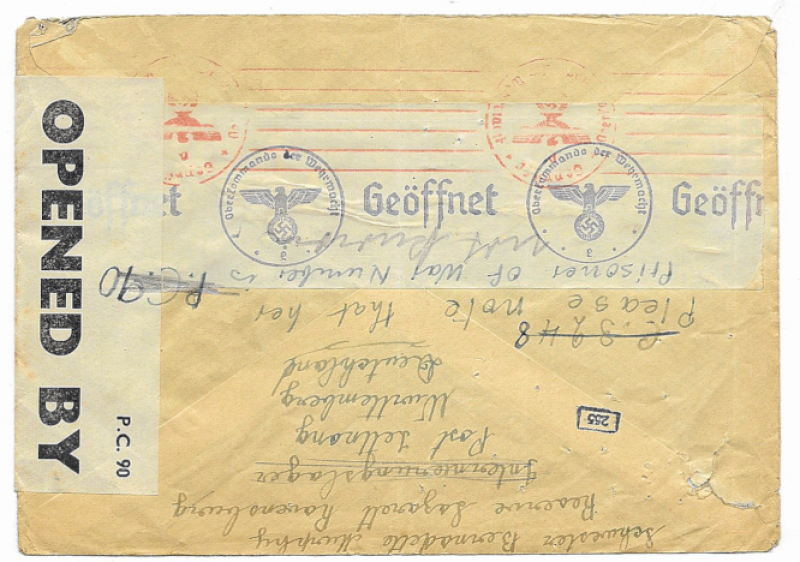 OPENED BY
P.C. 90
öffnet Geöffnet Geöffn
Oberkommando der Wehrmacht
e
Oberkommando der Wehrmacht
e
P.C. 90
3248
255
Schwester Bernadette Murphy
Reserve Lazarett Ravensburg
Internierungslager
Post Tettnang
Württemberg
Deutschland
Please note that her
Prisoner of War Number is
not